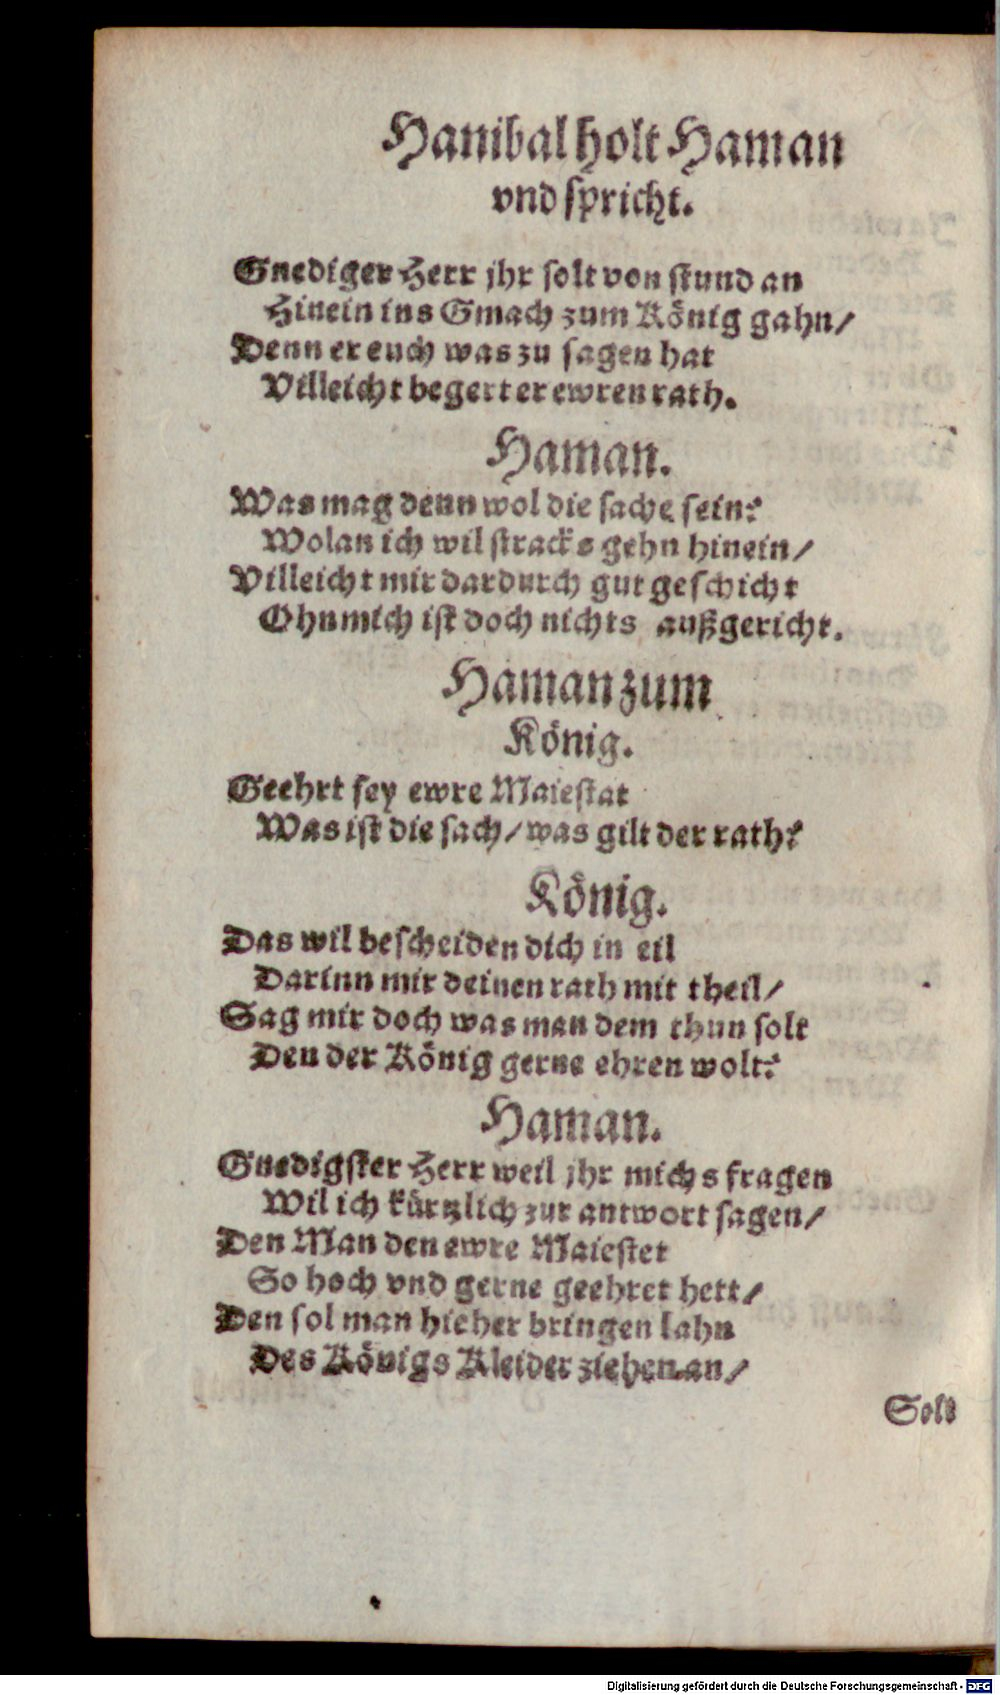 Hanibal holt Haman
vnd spricht.
Gnediger Herr jhr solt von stund an
Hinein ins Gmach zum König gahn/
Denn er euch was zu sagen hat
Villeicht begert er ewren rath.
Haman.
Was mag denn wol die sache sein?
Wolan ich wil stracks gehn hinein/
Villeicht mir dardurch gut geschicht
Ohn mich ist doch nichts außgericht.
Haman zum
König.
Geehrt sey ewre Maiestat
Was ist die sach/ was gilt der rath?
König.
Das wil bescheiden dich in eil
Darinn mir deinen rath mit theil/
Sag mir doch was man dem thun solt
Den der König gerne ehren wolt?
Haman.
Gnedigster Herr weil jhr michs fragen
Wil ich kürtzlich zur antwort sagen/
Den Man den ewre Maiestet
So hoch vnd gerne geehret hett/
Den sol man hieher bringen lahn
Des Königs Kleider ziehen an/
Solt
Digitalisierung gefördert durch die Deutsche Forschungsgemeinschaft - DFG